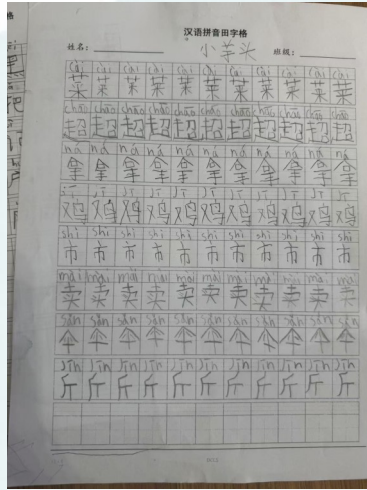 汉语拼音田字格
姓名: 小芋头 班级:
cài cài cài cài cài cài cài cài cài cài cài
菜 菜 菜 菜 菜 菜 菜 菜 菜 菜 菜
chāo chāo chāo chāo chāo chāo chāo chāo chāo chāo chāo
超 超 超 超 超 超 超 超 超 超 超
ná ná ná ná ná ná ná ná ná ná ná
拿 拿 拿 拿 拿 拿 拿 拿 拿 拿 拿
jī jī jī jī jī jī jī jī jī jī jī
鸡 鸡 鸡 鸡 鸡 鸡 鸡 鸡 鸡 鸡 鸡
shì shì shì shì shì shì shì shì shì shì shì
市 市 市 市 市 市 市 市 市 市 市
mài mài mài mài mài mài mài mài mài mài mài
卖 卖 卖 卖 卖 卖 卖 卖 卖 卖 卖
sǎn sǎn sǎn sǎn sǎn sǎn sǎn sǎn sǎn sǎn sǎn
伞 伞 伞 伞 伞 伞 伞 伞 伞 伞 伞
jīn jīn jīn jīn jīn jīn jīn jīn jīn jīn jīn
斤 斤 斤 斤 斤 斤 斤 斤 斤 斤 斤